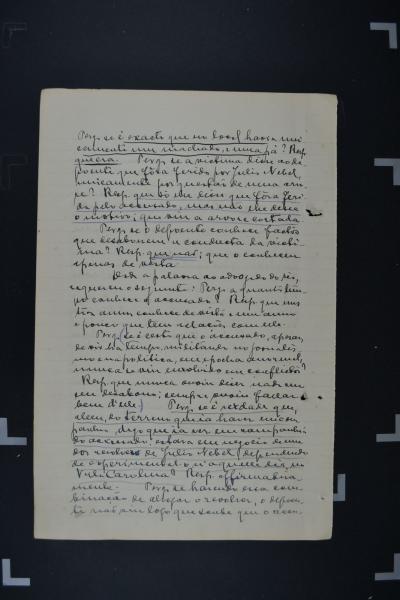 Perg. se é exacto que no local havia uni-
camente um machado, e uma pá? Resp.
que era. Perg. se a victima disse ao de-
poente que fôra ferido por Julio Nebel,
unicamente por questão de uma arvo-
re? Resp. que só lhe disse que fôra feri-
do pelo accusado, mas não lhe disse
o motivo; que viu a arvore cortada.
Perg. se o depoente conhece factos
que desabonem a conducta da victi-
ma? Resp. que não; que o conhecem
apenas de vista.
Dada a palavra ao advogado do réo,
requereu o seguinte: Perg. a quanto tem-
po conhece o accusado? Resp. que
annos conhece de vista e um anno
e pouco que tem relações com elle.
Perg. se é certo que o accusado, apesar
de ha tempo, militando no jornalis-
mo e na politica, em epocha anormal,
nunca se viu envolvido em conflictos?
Resp. que nunca ouviu dizer nada em
seu desabono; sempre ouviu fallar
bem d'elle. Perg. se é verdade que,
alem do terreno que ia haver
digo que ia ver em companhia
do accusado, estava em negocio de um
dos revolvers de Julio Nebel, dependendo
de o experimental-o n'aquelle dia, na
Villa Carolina? Resp. affirmativa-
mente. Perg. se havendo essa com-
binação de alvejar o revolver, o depoen-
te não viu logo que soube que o accu-